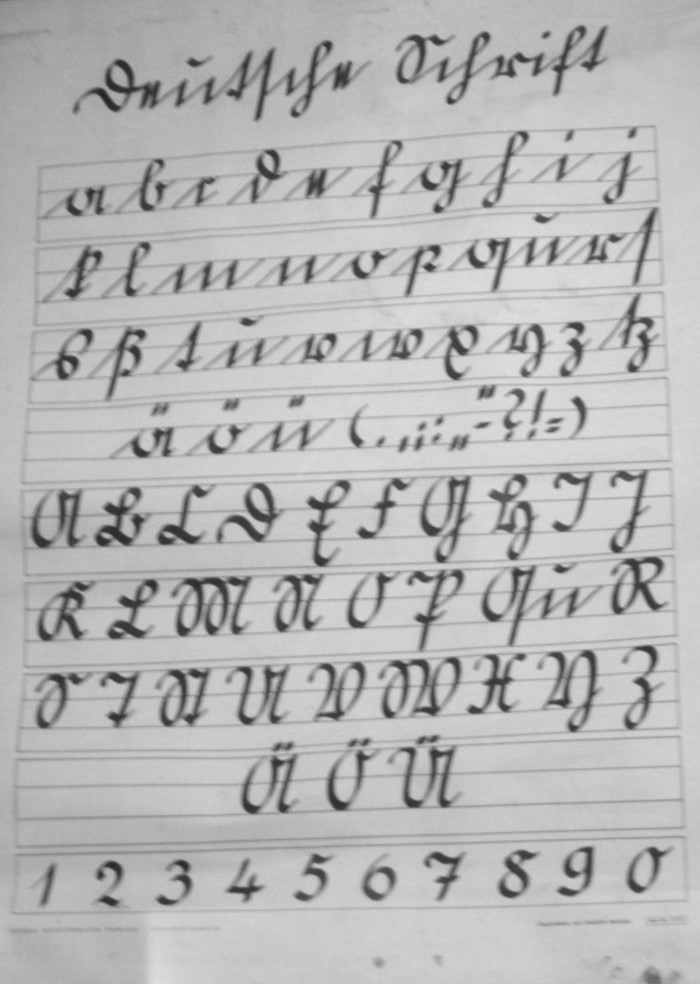 Deutſche Schrift
a b c d e f g h i j
k l m n o p qu r ſ
s ß t u v w x y z tz
ä ö ü ( . , ; : „ - “ ? ! = )
A B C D E F G H I J
K L M N O P Qu R
S T St U V W X Y Z
Ä Ö Ü
1 2 3 4 5 6 7 8 9 0